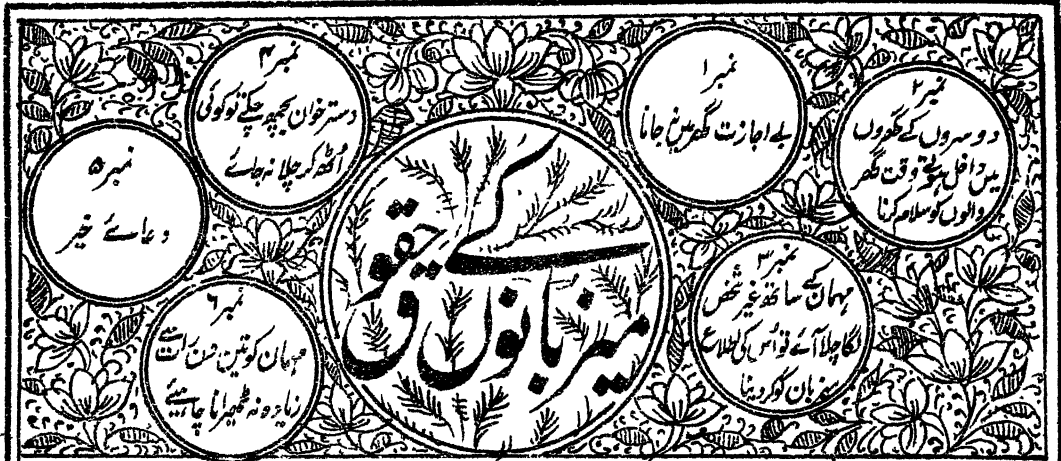 میزبانوں کے حقوق
نمبر ۱
بے اجازت گھر میں نہ جانا
نمبر ۲
دوسروں کے گھروں
میں داخل ہوتے وقت گھر
والوں کو سلام کرنا
نمبر ۳
مہمان کے ساتھ غیر شخص
لگا چلا آئے تو اُس کی اطلاع
میزبان کو کر دینا
نمبر ۴
دستر خوان بچھ چکے تو کوئی
اُٹھ کر چلا نہ جائے
نمبر ۵
دعائے خیر
نمبر ۶
مہمان کو تین دن رات سے
زیادہ نہ ٹھہرانا چاہیئے